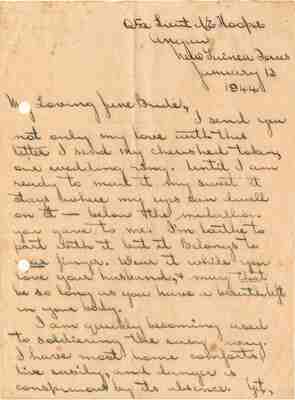 New Guinea Forces
January 12
1944
My Loving June Bride,
I send you
not only my love with this
letter I send my cherished token,
our wedding ring. Until I am
ready to mail it my sweet it
stays where my eyes can dwell
on it — below the medallion
you gave to me. I'm loathe to
part with it but it belongs to
your finger. Wear it while you
love your husband, & may that
be so long as you have a breath left
in your body.
I am quickly becoming used
to soldiering the easy way.
I have most home comforts,
live easily, and danger is
conspicuous by its absence. Yet,